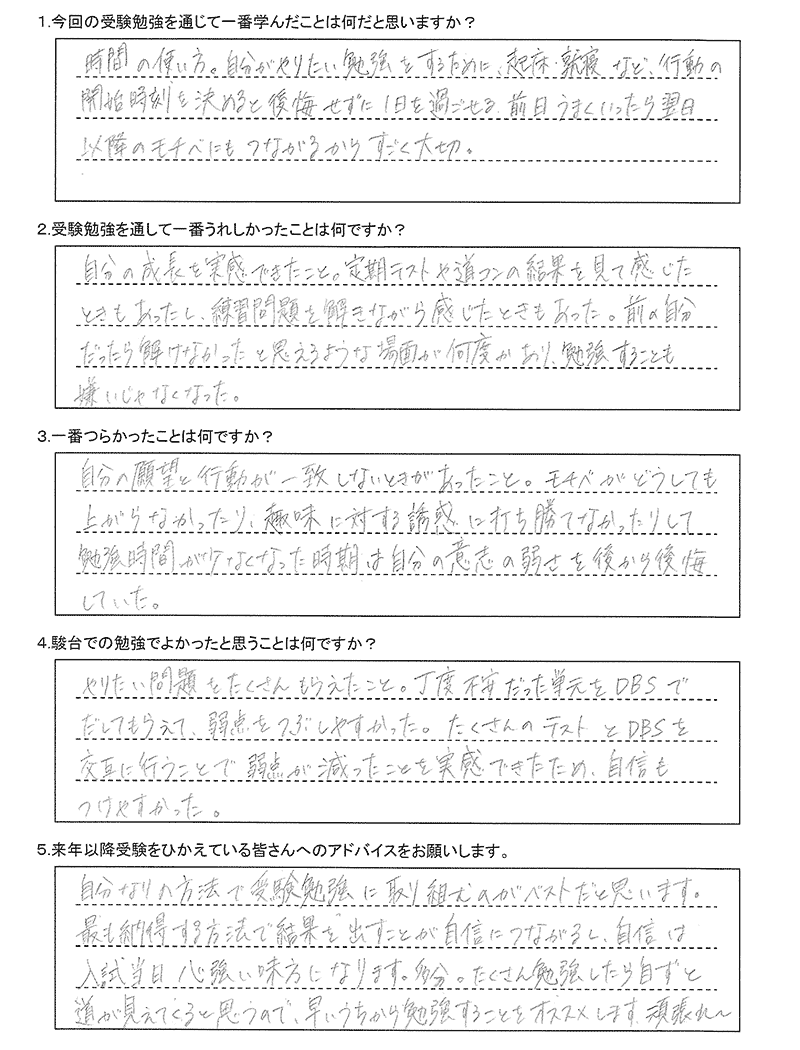 1.今回の受験勉強を通じて一番学んだことは何だと思いますか？
時間の使い方。自分がやりたい勉強をするために、起床・就寝など、行動の
開始時刻を決めると後悔せずに1日を過ごせる。前日うまくいったら翌日
以降のモチベにもつながるからすごく大切。
2.受験勉強を通して一番うれしかったことは何ですか？
自分の成長を実感できたこと。定期テストや道コンの結果を見て感じた
ときもあったし、練習問題を解きながら感じたときもあった。前の自分
だったら解けなかったと思えるような場面が何度かあり、勉強することも
嫌いじゃなくなった。
3.一番つらかったことは何ですか？
自分の願望と行動が一致しないときがあったこと。モチベがどうしても
上がらなかったり、趣味に対する誘惑に打ち勝てなかったりして
勉強時間が少なくなった時期は自分の意志の弱さを後から後悔
していた。
4.駿台での勉強でよかったと思うことは何ですか？
やりたい問題をたくさんもらえたこと。丁度不安だった単元をDBSで
だしてもらえて、弱点をつぶしやすかった。たくさんのテストとDBSを
交互に行うことで弱点が減ったことを実感できたため、自信も
つけやすかった。
5.来年以降受験をひかえている皆さんへのアドバイスをお願いします。
自分なりの方法で受験勉強に取り組むのがベストだと思います。
最も納得する方法で結果を出すことが自信につながるし、自信は
入試当日心強い味方になります。多分。たくさん勉強したら自ずと
道が見えてくると思うので、早いうちから勉強することをオススメします。頑張れ～